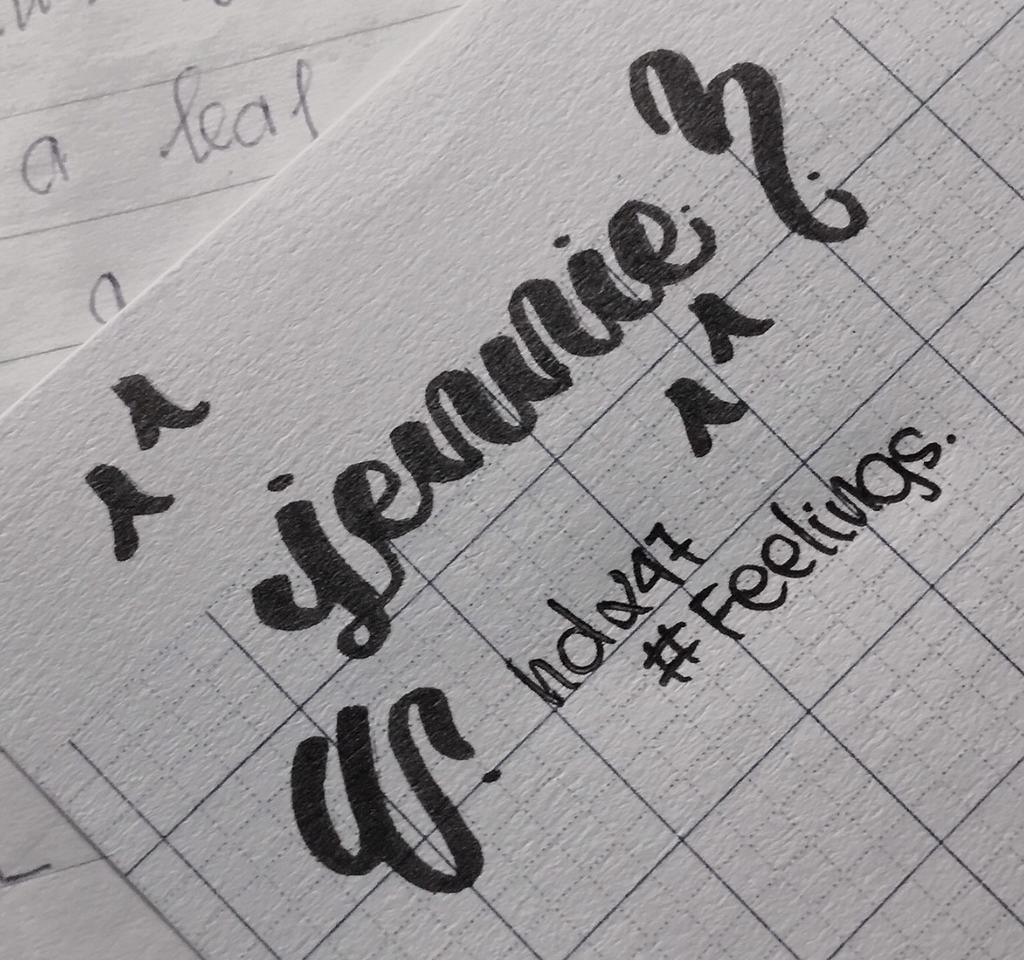 a leaf
a
jennie
hdx47
#Feelings.